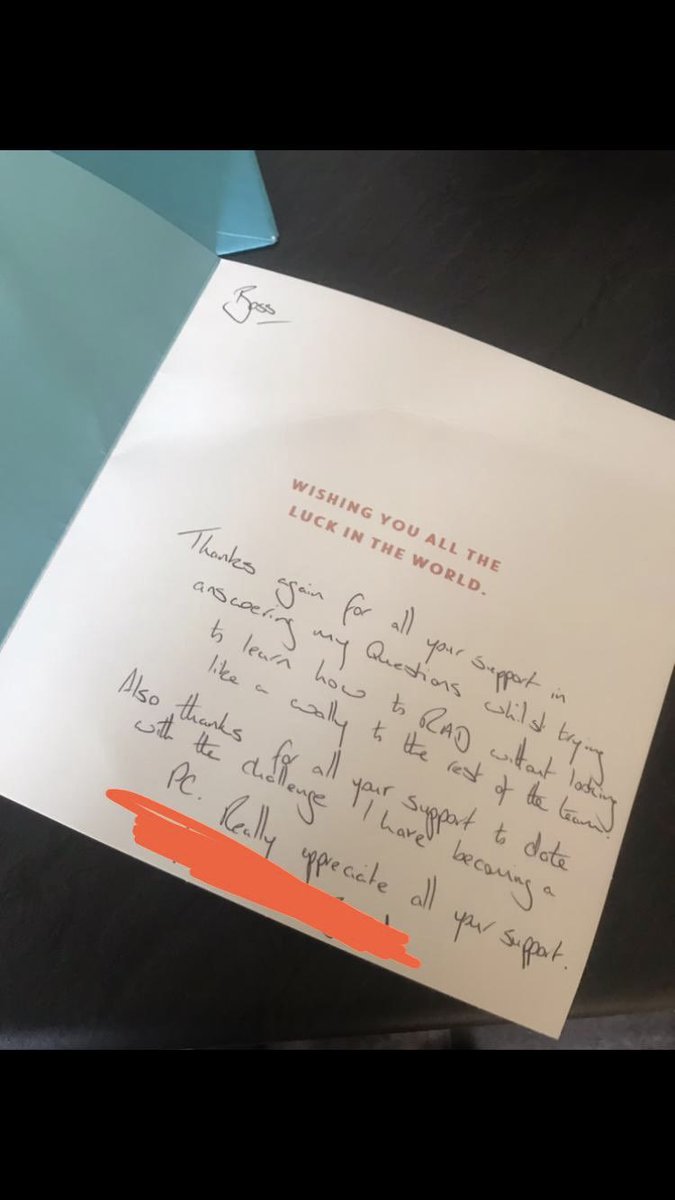 Boss
WISHING YOU ALL THE
LUCK IN THE WORLD.
Thanks again for all your support in
answering my Questions whilst trying
to learn how to RAD without looking
like a wally to the rest of the team.
Also thanks for all your support to date
with the challenge I have becoming a
PC. Really appreciate all your support.